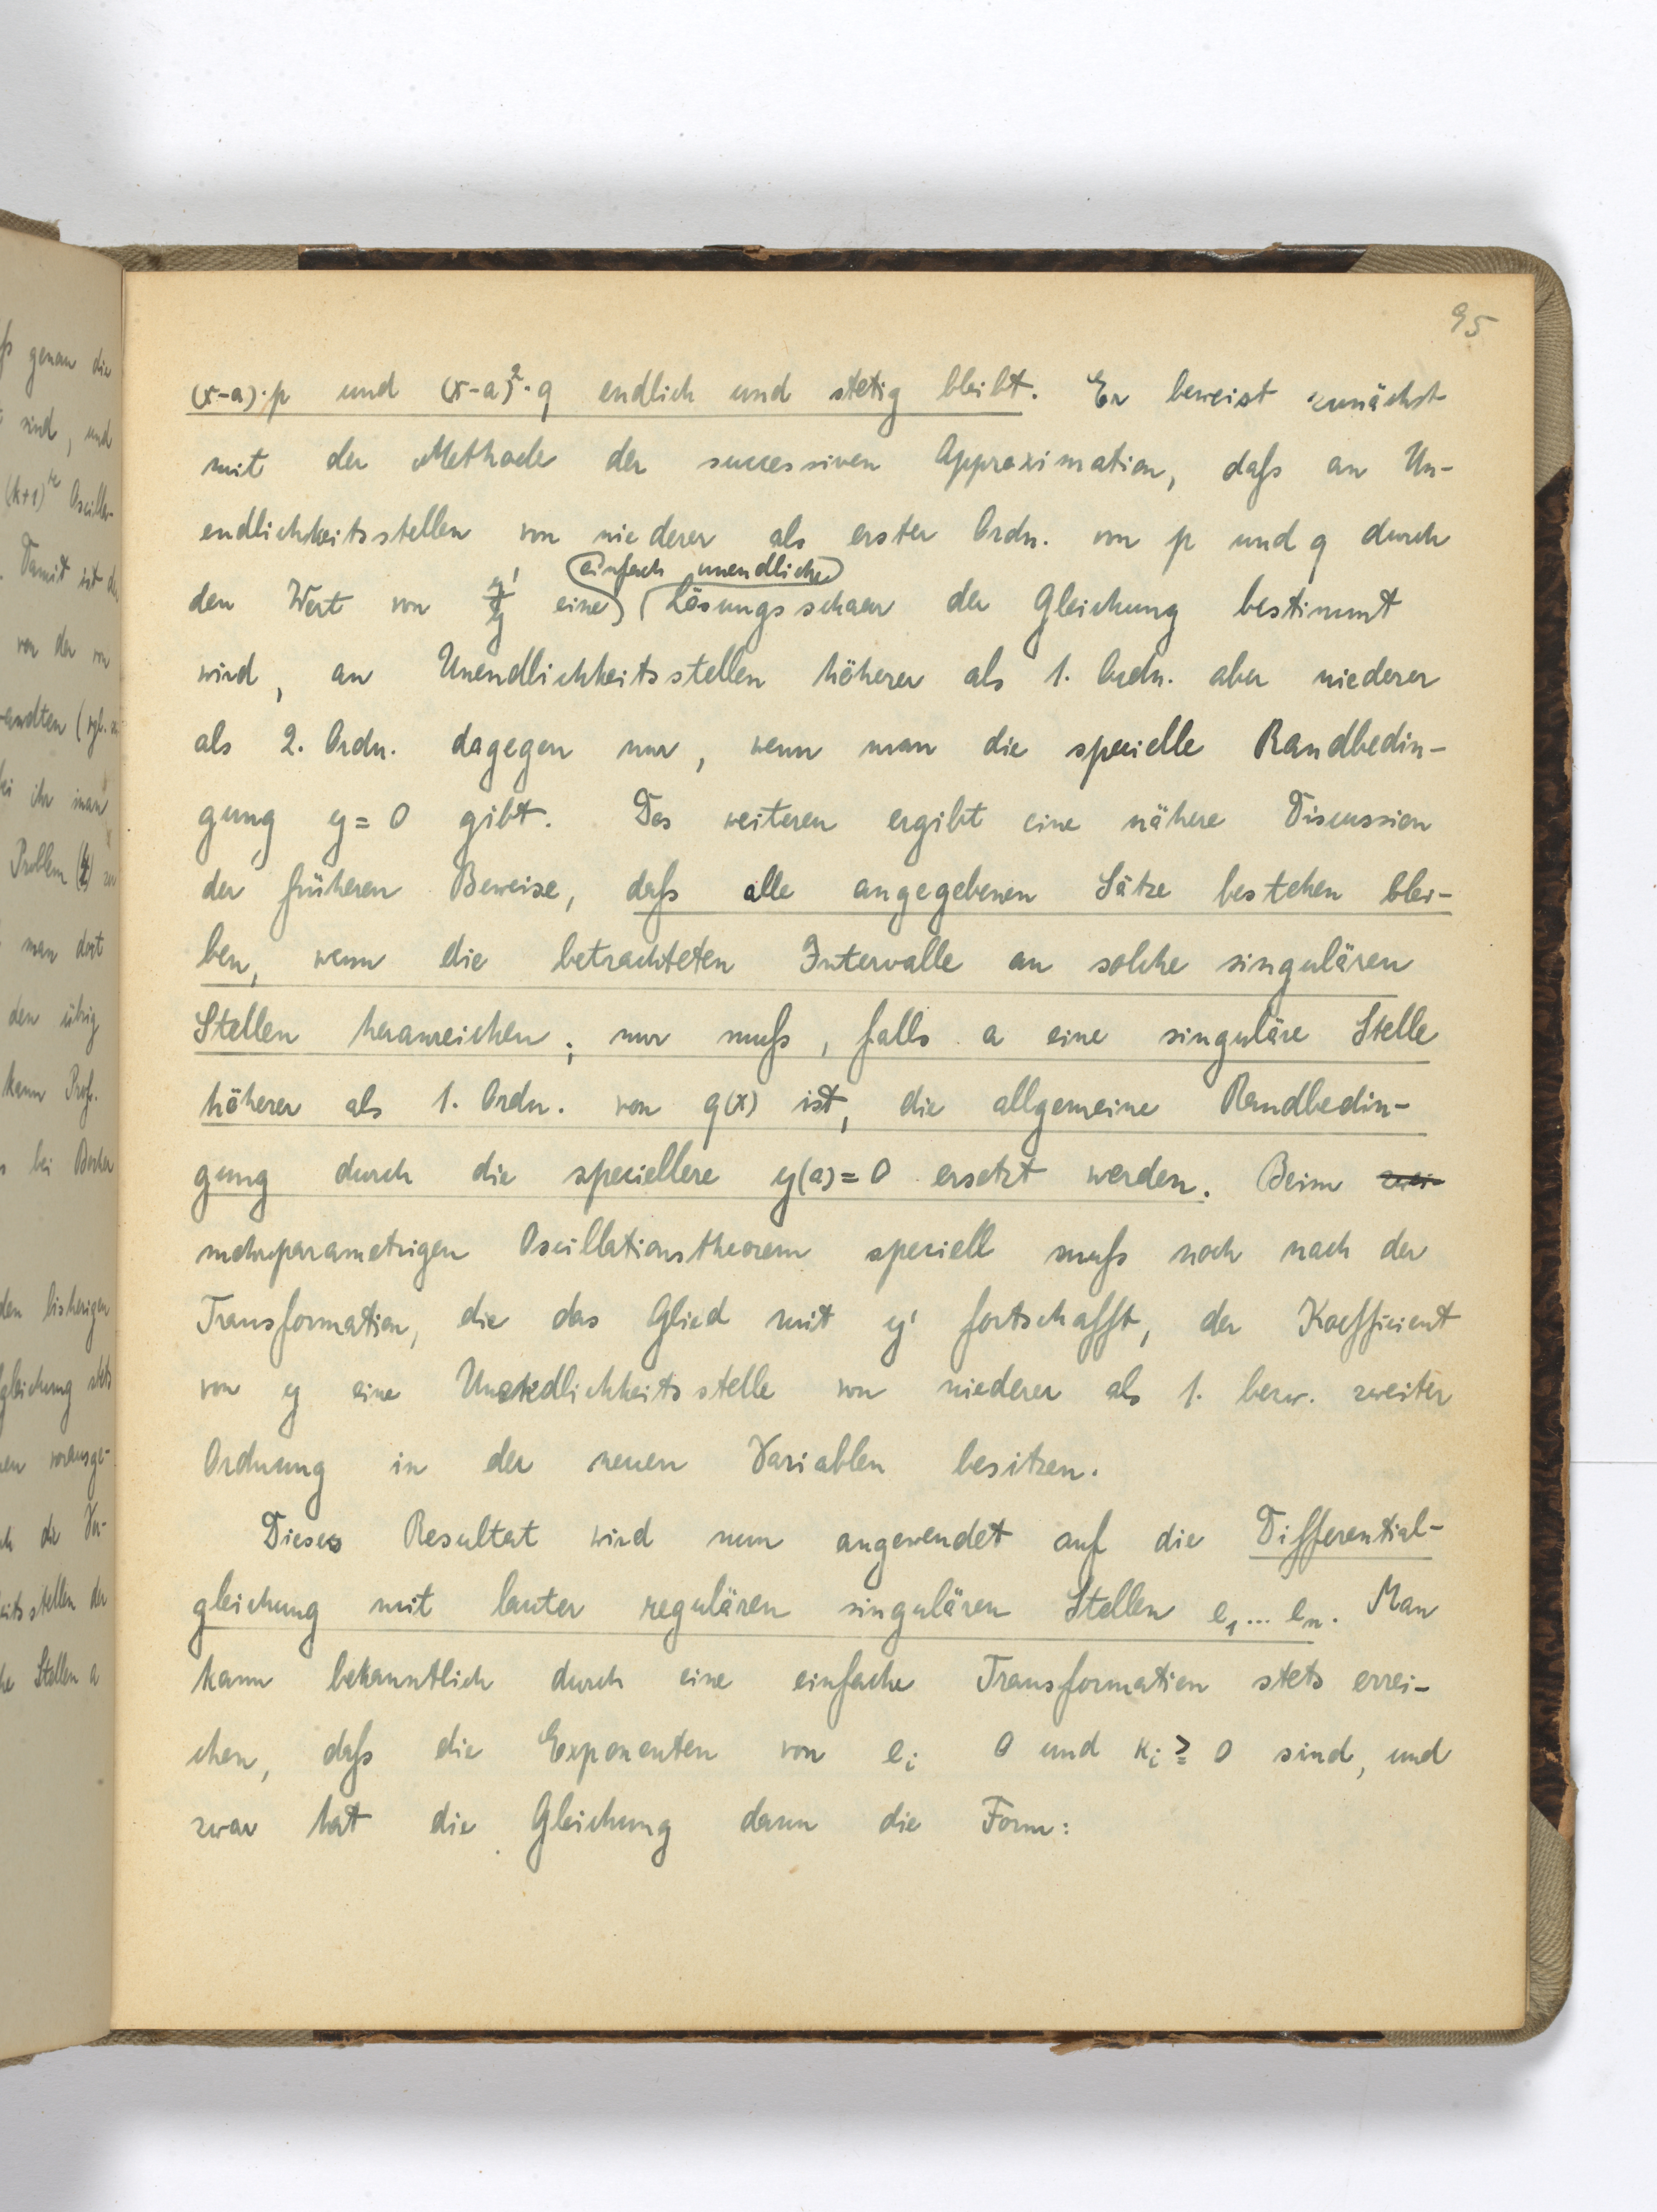 95
(x-a)·p und (x-a)²·q endlich und stetig bleibt. Er beweist zunächst
mit der Methode der successiven Approximation, daſs an Un-
endlichkeitsstellen von niederer als erster Ordn. von p und q durch
einfach unendliche
den Wert von y'/y eine Lösungsschaar der Gleichung bestimmt
wird, an Unendlichkeitsstellen höherer als 1. Ordn. aber niederer
als 2. Ordn. dagegen nur, wenn man die specielle Randbedin-
gung y = 0 gibt. Des weiteren ergibt eine nähere Discussion
der früheren Beweise, daſs alle angegebenen Sätze bestehen blei-
ben, wenn die betrachteten Intervalle an solche singulären
Stellen heranreichen; nur muſs, falls a eine singuläre Stelle
höherer als 1. Ordn. von q(x) ist, die allgemeine Randbedin-
gung durch die speciellere y(a) = 0 ersetzt werden. Beim zwei-
mehrparametrigen Oscillationstheorem speciell muſs noch nach der
Transformation, die das Glied mit y' fortschafft, der Koefficient
von y eine Unendlichkeitsstelle von niederer als 1. bezw. zweiter
Ordnung in der neuen Variablen besitzen.
Dieses Resultat wird nun angewendet auf die Differential-
gleichung mit lauter regulären singulären Stellen e₁ ... eₙ. Man
kann bekanntlich durch eine einfache Transformation stets errei-
chen, daſs die Exponenten von eᵢ 0 und κᵢ ≧ 0 sind, und
zwar hat die Gleichung dann die Form: